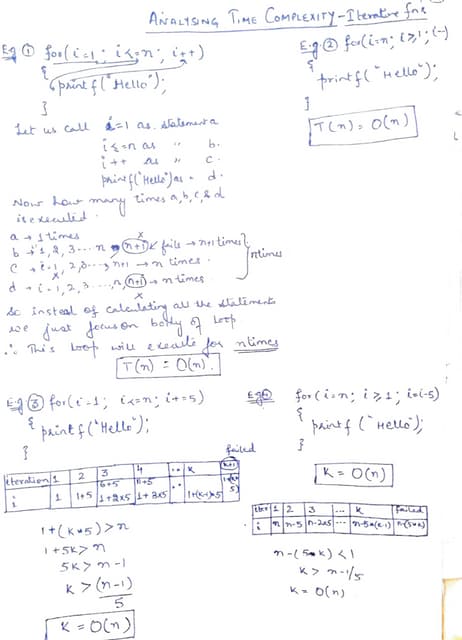 ANALYSING TIME COMPLEXITY - Iterative fns
E.g ① for(i=1; i<=n; i++)
{
printf("Hello");
}
Let us call i=1 as statement a
i<=n as " b.
i++ as " c.
printf("Hello") as - d.
Now how many times a,b,c,& d
is executed.
a → 1 times
b → 1, 2, 3 ... n, n+1 fails → n+1 times
c → i=1, 2, 3 ..., n+1 → n times.
d → i=1, 2, 3, ..., n, n+1 → n times
x
} n times
So instead of calculating all the statements
we just focus on body of loop
∴ This loop will execute for n times
T(n) = O(n).
E.g ② for(i=n; i≥1; i--)
{
printf("Hello");
}
T(n) = O(n)
E.g ③ for(i=1; i<=n; i+=5)
{
printf("Hello");
}
failed
iteration 1 2 3 4 .. k k+1
i 1 1+5 1+2x5 1+3x5 .. 1+(k-1)*5
1+(k*5) > n
1+5k > n
5k > n-1
k > (n-1)
5
k = O(n)
E.g for(i=n; i≥1; i=i-5)
{
printf("Hello");
}
k = O(n)
iter 1 2 3 ... k failed
i n n-5 n-2x5 ... n-5*(k-1) n-(5*k)
n-(5*k) < 1
k > n-1/5
k = O(n)